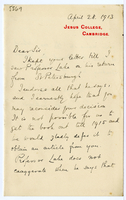 5869
April 28. 1913
JESUS COLLEGE,
CAMBRIDGE.
Dear Sir
I kept your letter till I
saw Professor Lake on his return
from St Petersburgh
I endorse all that he says
and I earnestly hope that you
may reconsider your decision
It is not possible for us to
get the book out till 1915 and
we would gladly defer it to
obtain an article from you
Professor Lake does not
exaggerate when he says that